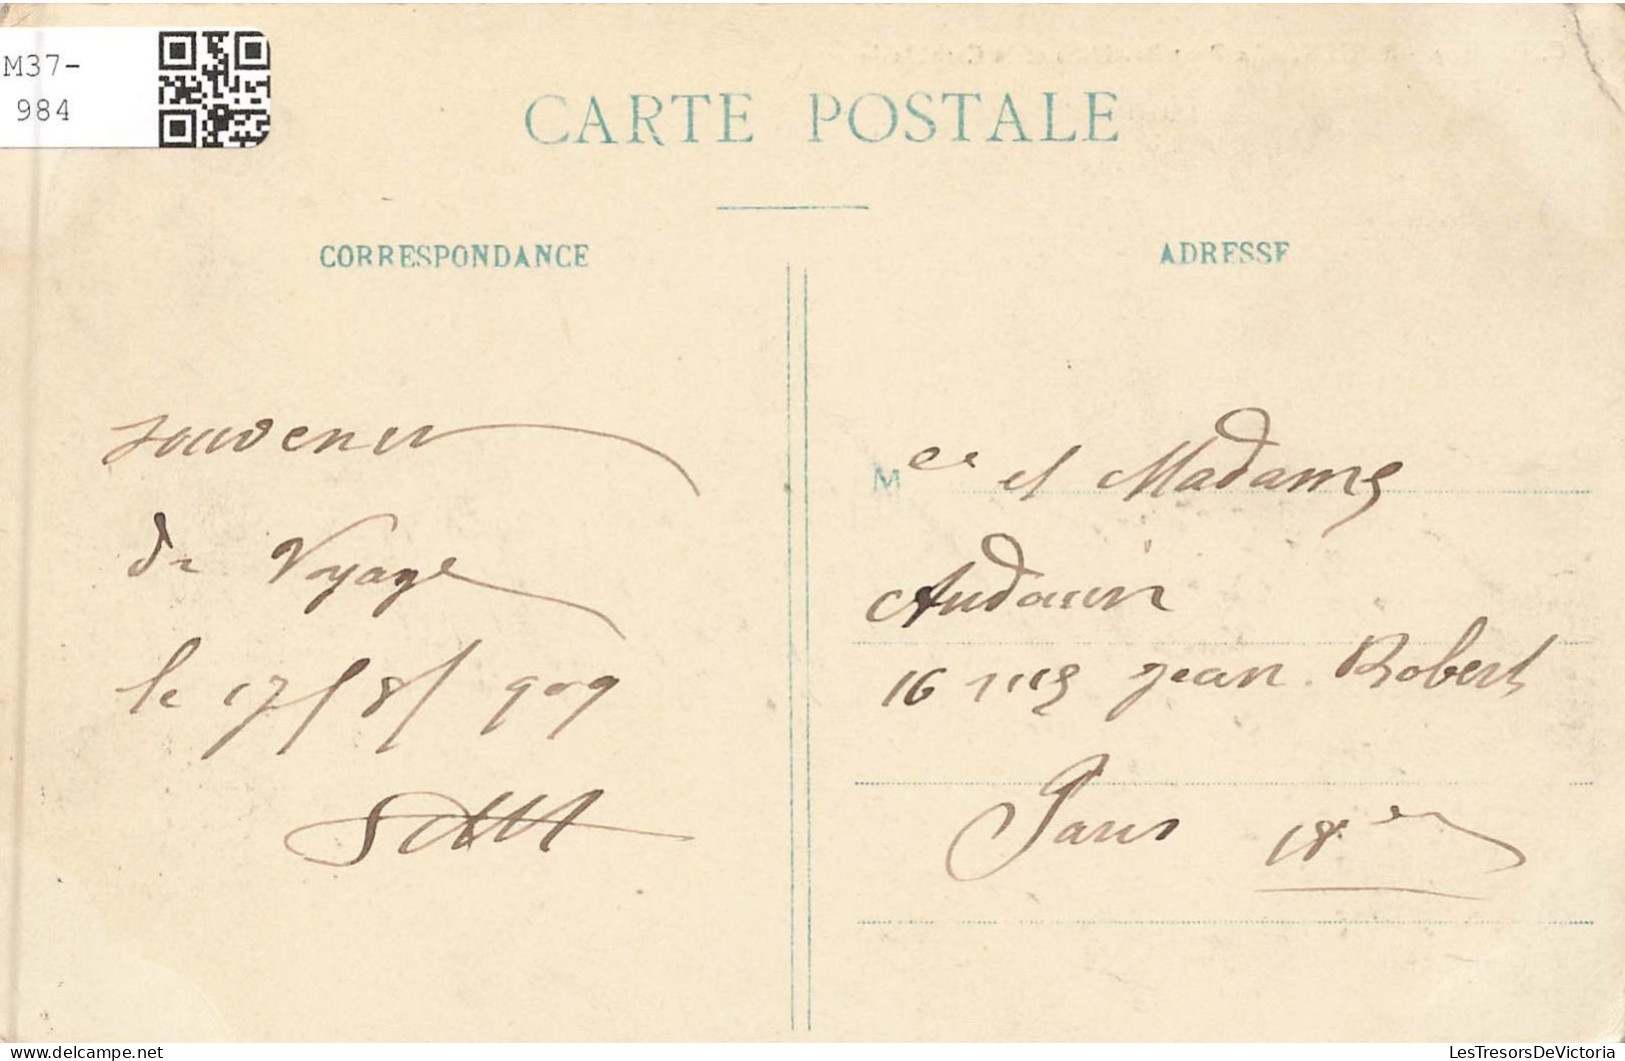 M37-
984
CARTE POSTALE
CORRESPONDANCE
ADRESSE
souvenir
de Voyage
le 17/8/909
M et Madame
Audouin
16 rue jean Robert
Paris 18
LesTresorsDeVictoria
LesTresorsDeVictoria